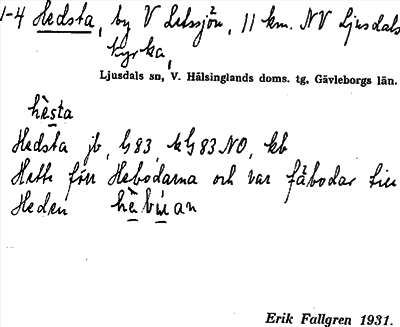 1-4 Hedsta, by V Letssjön, 11 km. NV Ljusdals
kyrka,
Ljusdals sn, V. Hälsinglands doms. tg, Gävleborgs län.
hèsta
Hedsta jb, G83, kG83NO, kb
Hette förr Hebodarna och var fäbodar till
Heden hèbùan
Erik Fallgren 1931.